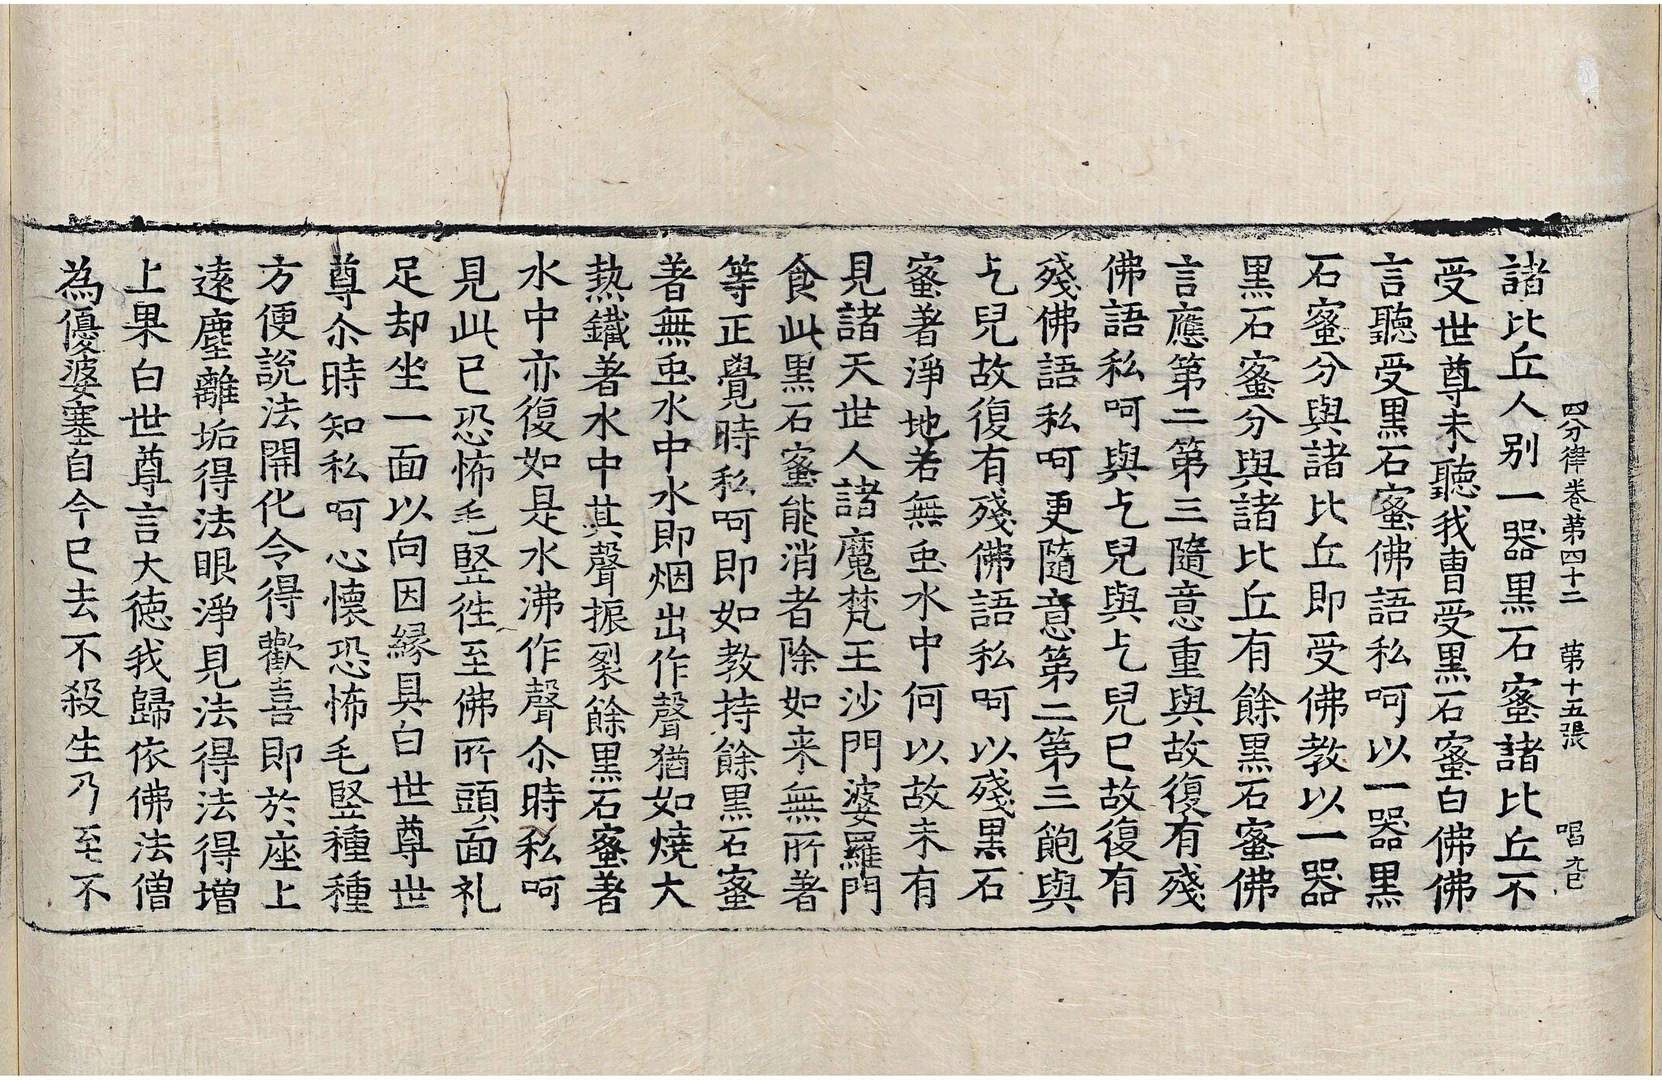 四分律卷第四十二　第十五張　唱九巳
諸比丘人别一器黒石蜜諸比丘不
受世尊未聽我曹受黒石蜜白佛佛
言聽受黒石蜜佛語私呵以一器黒
石蜜分與諸比丘即受佛教以一器
黒石蜜分與諸比丘有餘黒石蜜佛
言應第二第三隨意重與故復有殘
佛語私呵與乞兒與乞兒已故復有
殘佛語私呵更隨意第二第三飽與
乞兒故復有殘佛語私呵以殘黒石
蜜著淨地若無虫水中何以故未有
見諸天世人諸魔梵王沙門婆羅門
食此黒石蜜能消者除如来無所著
等正覺時私呵即如教持餘黒石蜜
著無虫水中水即烟出作聲猶如燒大
熱鐵著水中其聲振裂餘黒石蜜著
水中亦復如是水沸作聲尒時私呵
見此已恐怖毛竪徃至佛所頭面礼
足却坐一面以向因縁具白世尊世
尊尒時知私呵心懐恐怖毛竪種種
方便說法開化令得歡喜即於座上
遠塵離垢得法眼淨見法得法得増
上果白世尊言大徳我歸依佛法僧
為優婆塞自今已去不殺生乃至不